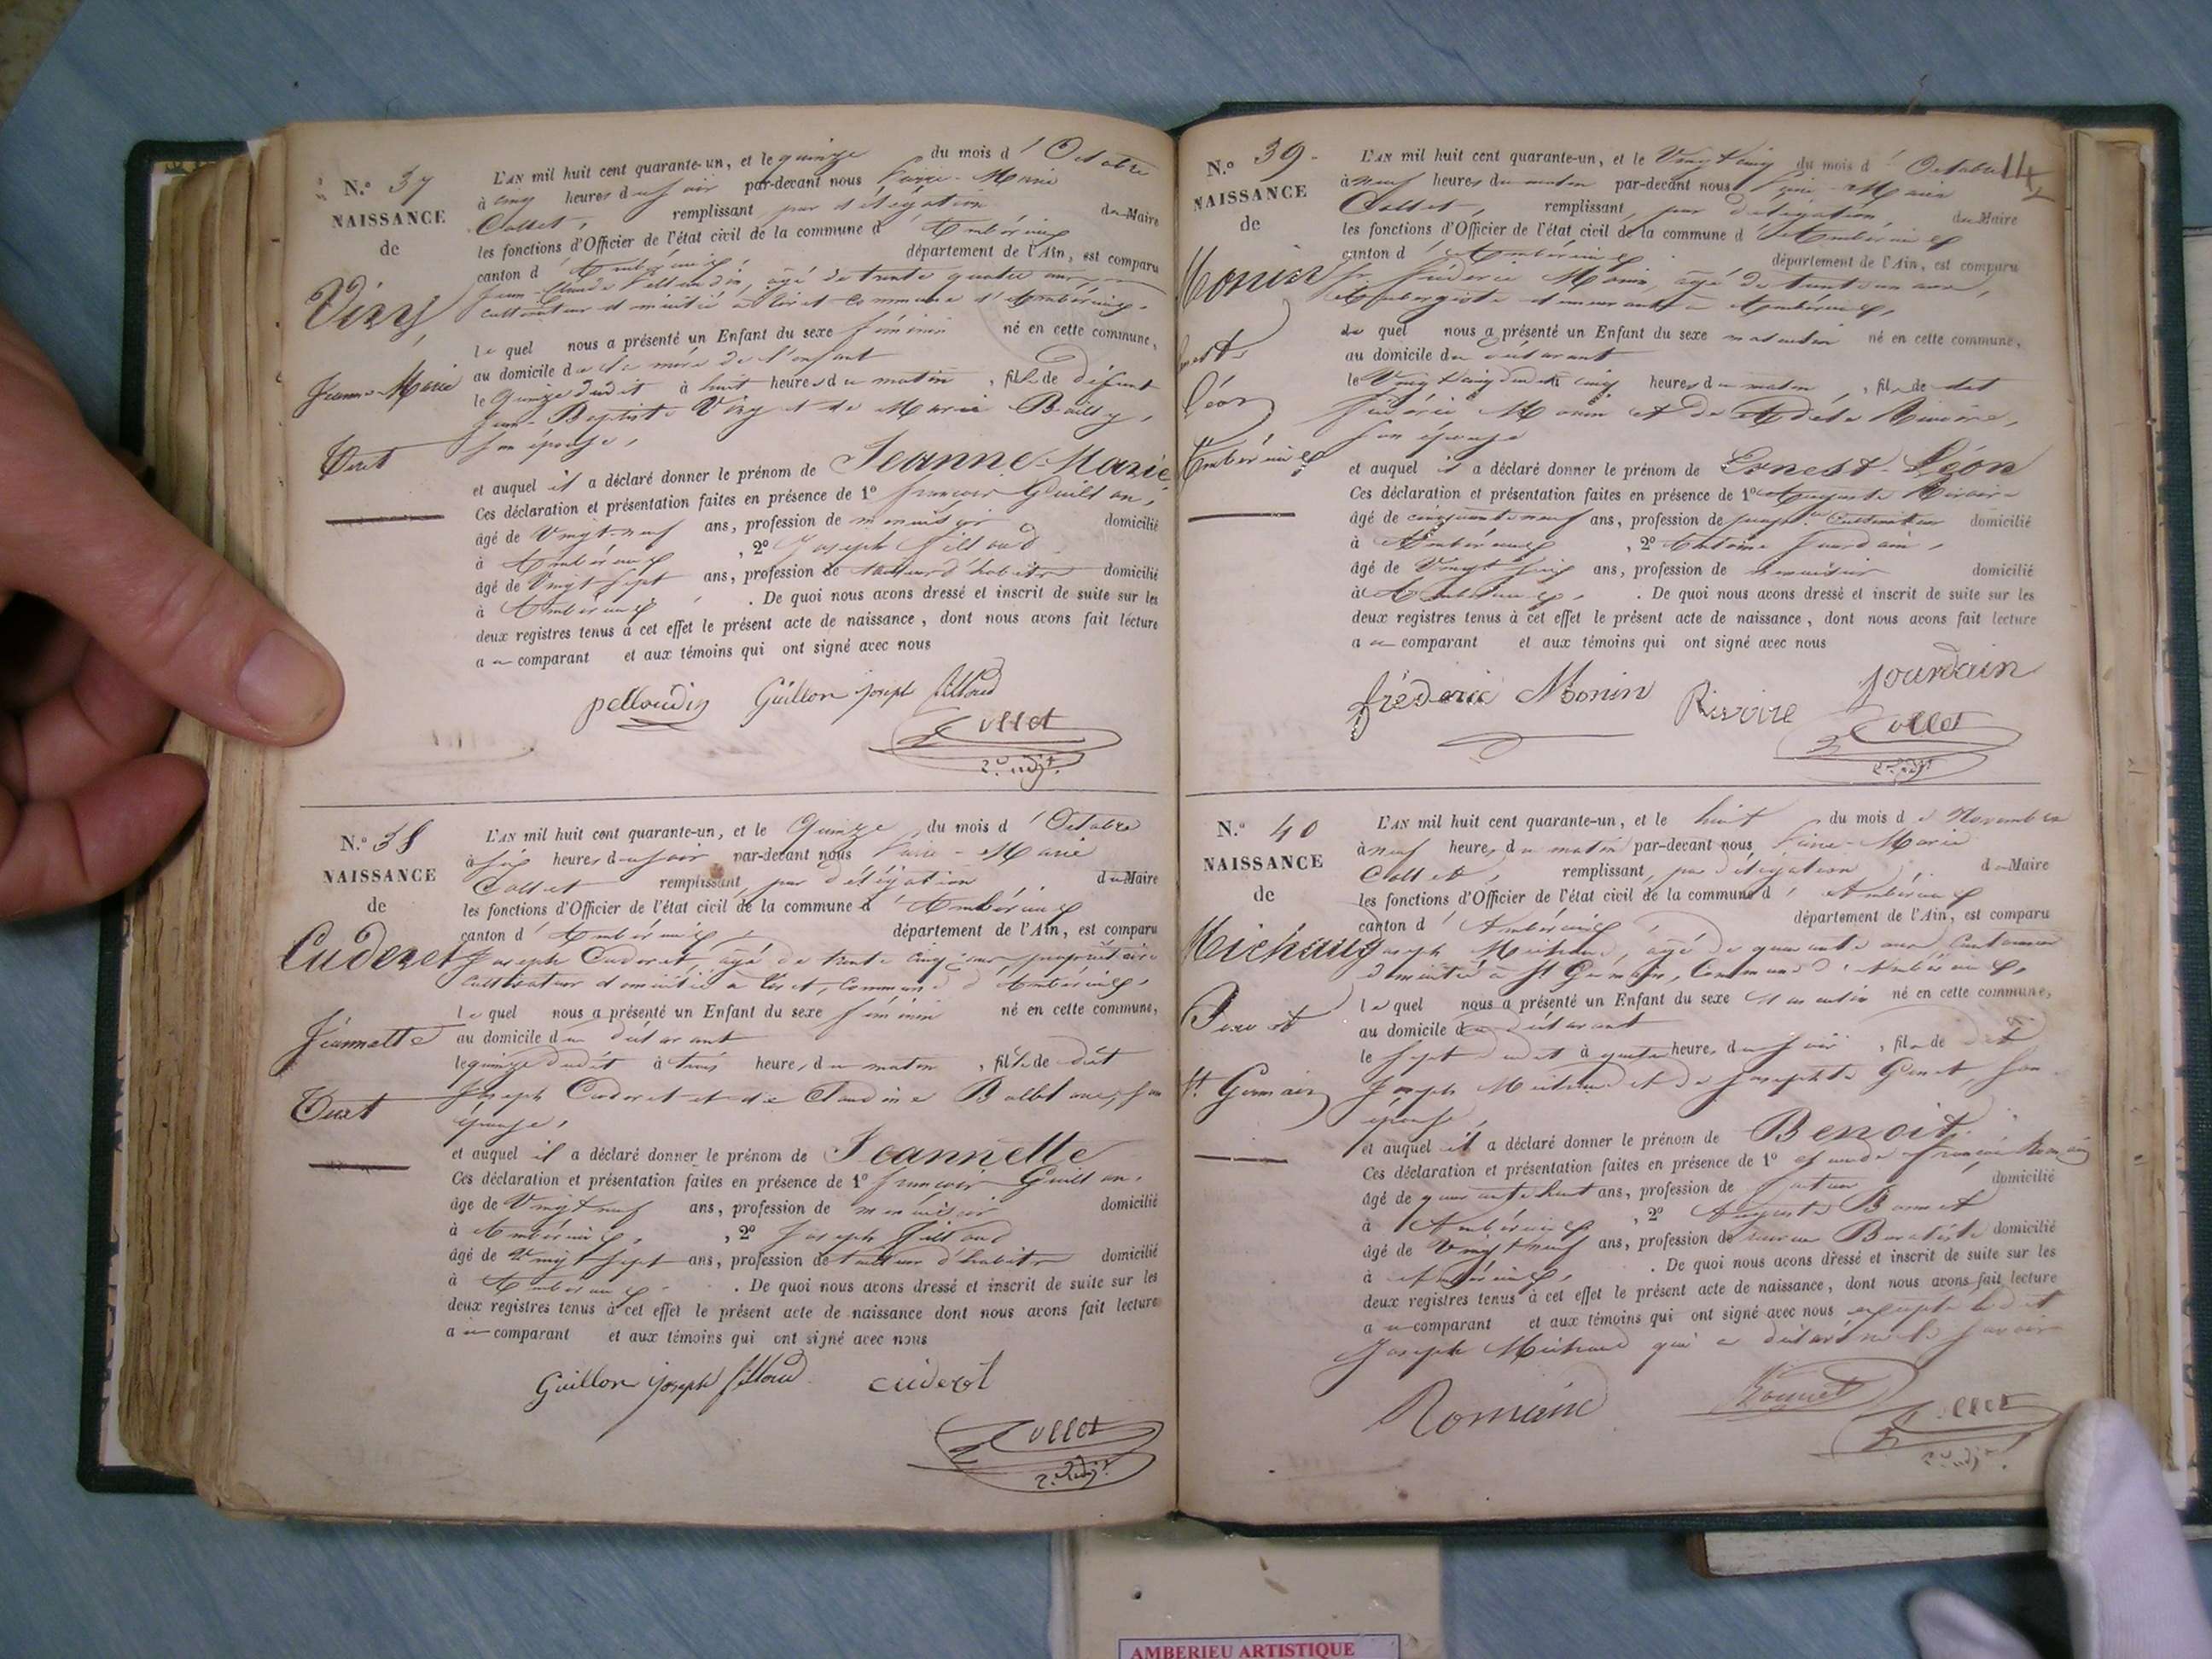 N.º 37
NAISSANCE
de
Vizy,
Jeanne-Marie
L'AN mil huit cent quarante-un, et le quinze du mois d'Octobre
à cinq heures du soir par-devant nous Marie
Collet, remplissant, par délégation du Maire
les fonctions d'Officier de l'état civil de la commune d'Ambérieux
canton d'Ambérieux département de l'Ain, est comparu
Jean-Claude Pelloudin, agé de trente quatre ans,
cultivateur domicilié à commune d'Ambérieux,
lequel nous a présenté un Enfant du sexe féminin né en cette commune,
au domicile de la mère de l'enfant
le Quinze dudit à huit heures du matin, fille de défunt
Jean-Baptiste Vizy et de Marie Bailly,
son épouse,
et auquel il a déclaré donner le prénom de Jeanne-Marie
Ces déclaration et présentation faites en présence de 1º françois Guillon,
âgé de Vingt-neuf ans, profession de menuisier domicilié
à Ambérieux, 2º Joseph Filloud
âgé de Vingt sept ans, profession de tailleur d'habits domicilié
à Ambérieux. De quoi nous avons dressé et inscrit de suite sur les
deux registres tenus à cet effet le présent acte de naissance, dont nous avons fait lecture
au comparant et aux témoins qui ont signé avec nous
pelloudin Guillon joseph filloud
Collet
N.º 38
NAISSANCE
de
Cuderet
Jeannette
L'AN mil huit cent quarante-un, et le Quinze du mois d'Octobre
à six heures du soir par-devant nous Marie
Collet remplissant, par délégation du Maire
les fonctions d'Officier de l'état civil de la commune d'Ambérieux
canton d'Ambérieux, département de l'Ain, est comparu
Joseph Cuderet, agé de trente cinq ans, propriétaire
cultivateur domicilié à commune d'Ambérieux,
lequel nous a présenté un Enfant du sexe féminin né en cette commune,
au domicile du déclarant
le quinze dudit à trois heures du matin, fille de dit
Joseph Cuderet et de Claudine son
épouse,
et auquel il a déclaré donner le prénom de Jeannette
Ces déclaration et présentation faites en présence de 1º françois Guillon,
âgé de Vingt neuf ans, profession de menuisier domicilié
à Ambérieux, 2º Joseph Filloud
âgé de Vingt sept ans, profession de tailleur d'habits domicilié
à Ambérieux. De quoi nous avons dressé et inscrit de suite sur les
deux registres tenus à cet effet le présent acte de naissance dont nous avons fait lecture
au comparant et aux témoins qui ont signé avec nous
Guillon joseph filloud cuderet
Collet
N.º 39
NAISSANCE
de
Monin
Léon
Ambérieux
L'AN mil huit cent quarante-un, et le Vingt cinq du mois d'Octobre
à neuf heures du matin par-devant nous Marie
Collet, remplissant, par délégation, du Maire
les fonctions d'Officier de l'état civil de la commune d'Ambérieux
canton d'Ambérieux département de l'Ain, est comparu
Sr. frédéric Monin, agé de trente un ans,
Aubergiste demeurant à Ambérieux,
lequel nous a présenté un Enfant du sexe masculin né en cette commune,
au domicile du déclarant
le Vingt cinq dudit à cinq heures du matin, fils de dit
frédéric Monin et de Adèle Rivoire,
son épouse
et auquel il a déclaré donner le prénom de Ernest-Léon
Ces déclaration et présentation faites en présence de 1º Auguste Rivoire
âgé de cinquante neuf ans, profession de propr.re Cultivateur domicilié
à Ambérieux, 2º Antoine Jourdain,
âgé de Vingt six ans, profession de menuisier domicilié
à Ambérieux. De quoi nous avons dressé et inscrit de suite sur les
deux registres tenus à cet effet le présent acte de naissance, dont nous avons fait lecture
au comparant et aux témoins qui ont signé avec nous
frédéric Monin Rivoire jourdain
Collet
N.º 40
NAISSANCE
de
Michaud
Benoit
St. Germain
L'AN mil huit cent quarante-un, et le huit du mois de Novembre
à neuf heures du matin par-devant nous Marie
Collet, remplissant, par délégation du Maire
les fonctions d'Officier de l'état civil de la commune d'Ambérieux
canton d'Ambérieux département de l'Ain, est comparu
Joseph Michaud, agé de quarante ans,
domicilié à St Germain, Commune d'Ambérieux,
lequel nous a présenté un Enfant du sexe Masculin né en cette commune,
au domicile du déclarant
le sept dudit à quatre heures du soir, fils de dit
Joseph Michaud et de Josephte son
épouse,
et auquel il a déclaré donner le prénom de Benoit
Ces déclaration et présentation faites en présence de 1º françois Romain
âgé de quarante huit ans, profession de domicilié
à Ambérieux, 2º Auguste
âgé de Vingt neuf ans, profession de domicilié
à Ambérieux. De quoi nous avons dressé et inscrit de suite sur les
deux registres tenus à cet effet le présent acte de naissance, dont nous avons fait lecture
au comparant et aux témoins qui ont signé avec nous excepté ledit
Joseph Michaud qui a déclaré ne le savoir
Collet
AMBERIEU ARTISTIQUE